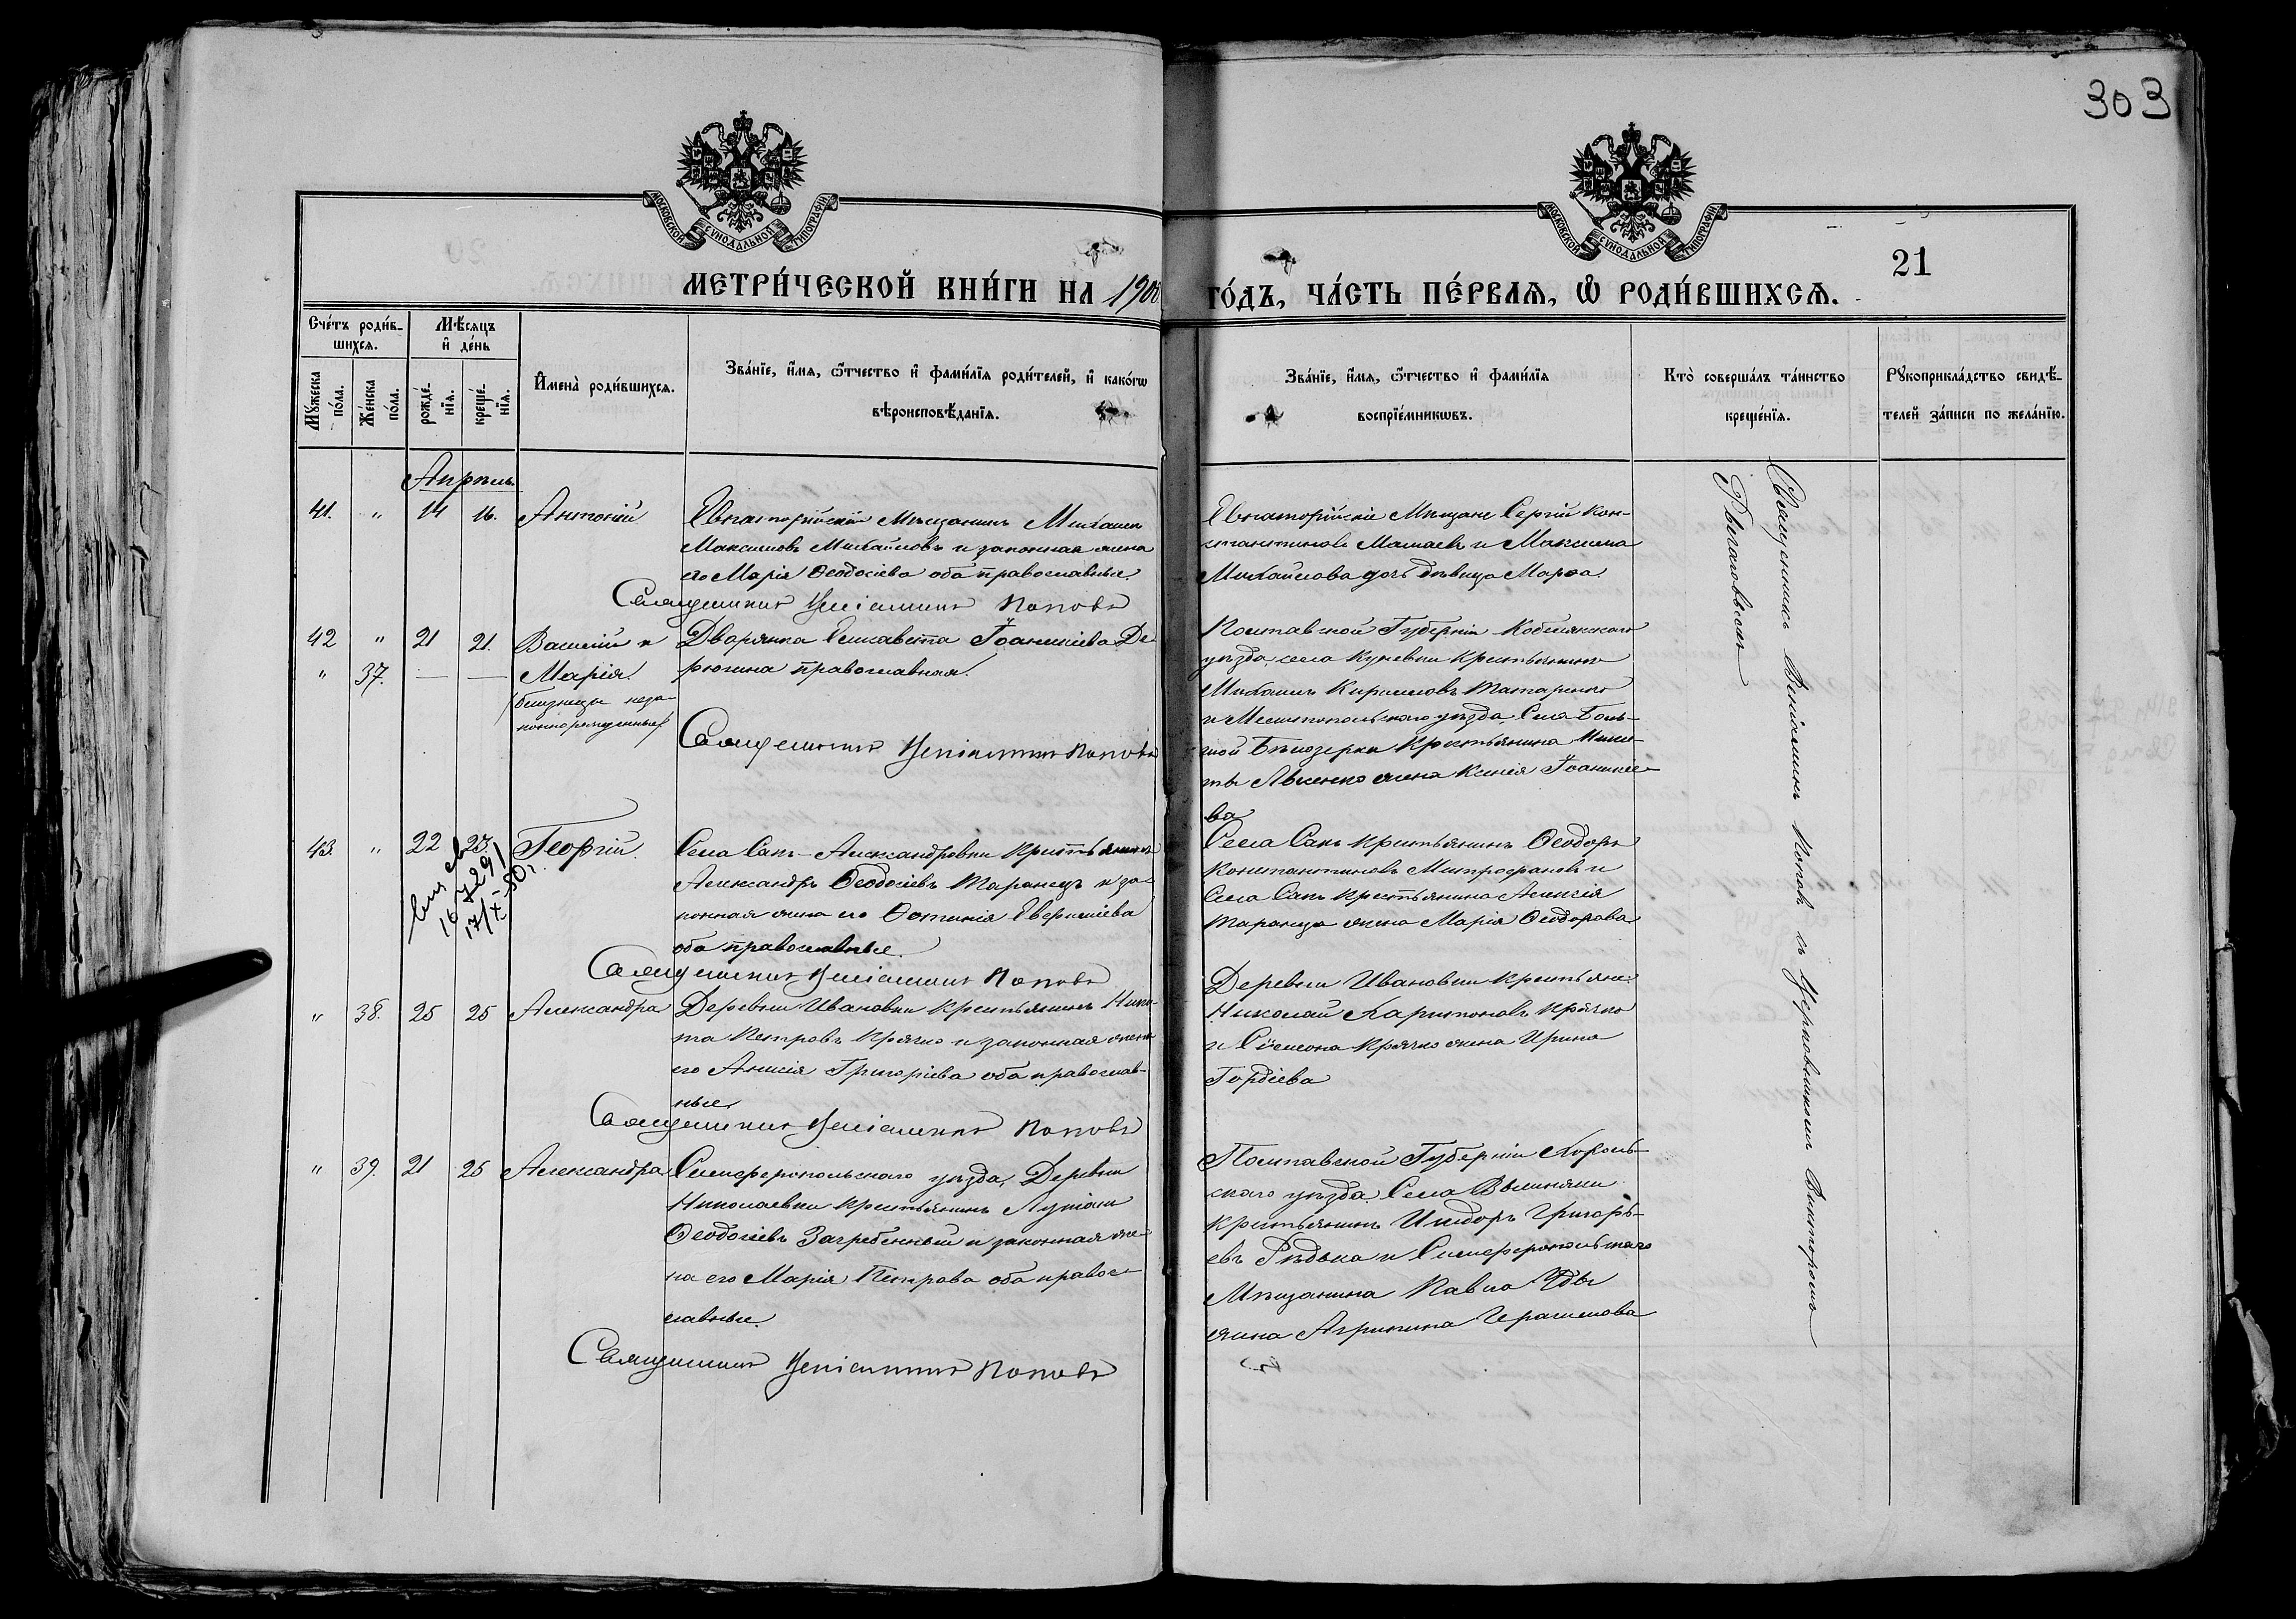 303
МОСКОВСКОЙ СУНОДАЛЬНОЙ ТИПОГРАФІИ
МОСКОВСКОЙ СУНОДАЛЬНОЙ ТИПОГРАФІИ
21
МЕТРИ́ЧЕСКОЙ КНИ́ГИ НА
ГО́ДЪ, ЧА́СТЬ ПЕ́РВАЯ, Ѡ҆ РОДИ́ВШИХСѦ.
Сче́тъ роди́в-
шихсѧ.
Мѣ́сѧцъ
и҆ де́нь
Мꙋ́жеска
по́ла.
Же́нска
по́ла.
рожде́-
нїѧ.
креще́-
нїѧ.
И҆мена̀ роди́вшихсѧ.
Зва́нїе, и҆́мѧ, ѻ҆́тчество и҆ фами́лїѧ роди́телей, и҆ како́гѡ
вѣроисповѣ́данїѧ.
Зва́нїе, и҆́мѧ, ѻ҆́тчество и҆ фами́лїѧ
воспрїе́мникѡвъ.
Кто̀ соверша́лъ та́инство
креще́нїѧ.
Рꙋкоприкла́дство свидѣ́-
телей за́писи по жела́нїю.
Апрѣль
41. " 14 16. Антоній
Евпаторійскій Мѣщанинъ Михаилъ
Максимовъ Михайловъ и законная жена
его Марія Ѳеодосіева оба православные.
Священникъ Веніаминъ Поповъ
Евпаторійскіе Мѣщане Сергій Кон-
стантиновъ Мамаевъ и Максима
Михайлова дочь дѣвица Марѳа.
42 " 21 21. Василій и
" 37. — — Марія.
близнецы неза-
коннорожденные
Дворянка Елисавета Іоанникіева Де-
рюгина православная.
Священникъ Веніаминъ Поповъ
Полтавской Губерніи Кобелякскаго
уѣзда, села Куневки Крестьянинъ
Михаилъ Кирилловъ Татаренко
и Мелитопольскаго уѣзда, Села Боль-
шой Бѣлозерки Крестьянина Ники-
ты Лысенко жена Ксенія Іоанникіе-
ва
43. " 22 23. Георгій.
16729
17/X-50г.
Села Сакъ-Александровки Крестьянинъ
Александръ Ѳеодосіевъ Таранецъ и за-
конная жена его Фотинія
оба православные.
Священникъ Веніаминъ Поповъ
Села Сакъ Крестьянинъ Ѳеодоръ
Константиновъ Митрофановъ и
Села Сакъ Крестьянина Алексія
Таранца жена Марія Ѳеодорова
" 38. 25 25 Александра
Деревни Ивановки Крестьянинъ Ники-
та Петровъ Крячко и законная жена
его Анисія Григоріева оба православ-
ные.
Священникъ Веніаминъ Поповъ
Деревни Ивановки Крестьяне:
Николай Харитоновъ Крячко
и Сѵмеона Крячко жена Ирина
Гордіева
" 39. 21 25 Александра
Симферопольскаго уѣзда, Деревни
Николаевки Крестьянинъ Лукіанъ
Ѳеодосіевъ Загребенный и законная же-
на его Марія Петрова оба право-
славные.
Священникъ Веніаминъ Поповъ
Полтавской Губерніи Хороль-
скаго уѣзда, Села
Крестьянинъ Исидоръ Григорь-
евъ Рѣдька и Симферопольскаго
Мѣщанина Павла
жена Агрипина Герасимова
Священникъ Веніаминъ Поповъ съ Церковникомъ Викторомъ